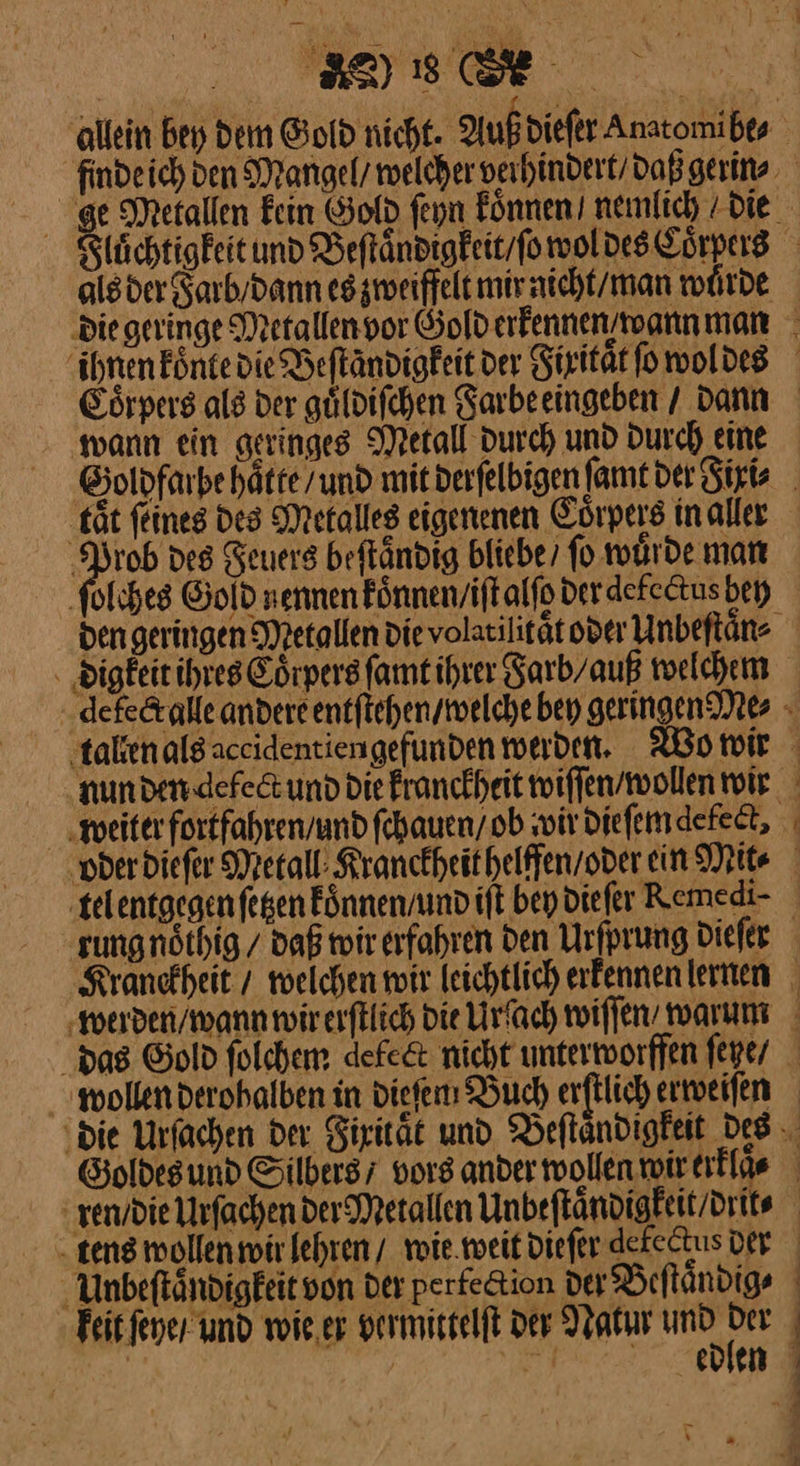 18
allein bey dem Gold nicht. Auß dieſer Anatomi be⸗
finde ich den Mangel / welcher verhindert / daß gerin⸗
ge Metallen kein Gold ſeyn koͤnnen / nemlich / die
Fluͤchtigkeit und Beſtaͤndigkeit / ſo wol des Coͤrpers
als der Farb / dann es zweiffelt mir nicht / man wuͤrde
die geringe Metallen vor Gold erkennen / wann man
ihnen koͤnte die Beſtaͤndigkeit der Fixitaͤt ſo wol des
Coͤrpers als der guͤldiſchen Farbe eingeben / dann
wann ein geringes Metall durch und durch eine
Goldfarbe haͤtte / und mit derſelbigen ſamt der Fixi⸗
taͤt ſeines des Metalles eigenenen Coͤrpers in aller
Prob des Feuers beſtaͤndig bliebe / ſo wuͤrde man
ſolches Gold nennen koͤnnen / iſt alſo der defectus bey
den geringen Metallen die volatilitaͤt oder Unbeſtaͤn⸗
digkeit ihres Coͤrpers ſamt ihrer Farb / auß welchem
defect alle andere entſtehen / welche bey geringen Me⸗
tallen als accidentien gefunden werden. Wo wir
nun den defect und die kranckheit wiſſen / wollen wir
weiter fortfahren / und ſchauen / ob wir dieſem defect,
oder dieſer Metall Kranckheit helffen / oder ein Mit⸗
tel entgegen ſetzen koͤnnen / und iſt bey dieſer Remedi-
rung noͤthig / daß wir erfahren den Urſprung dieſer
Kranckheit / welchen wir leichtlich erkennen lernen
werden / wann wir erſtlich die Urſach wiſſen / warum
das Gold ſolchem defect nicht unterworffen ſeye /
wollen derohalben in dieſem Buch erſtlich erweiſen
die Urſachen der Fixitaͤt und Beſtaͤndigkeit des
Goldes und Silbers / vors ander wollen wir erklaͤ⸗
ren / die Urſachen der Metallen Unbeſtaͤndigkeit / drit⸗
tens wollen wir lehren / wie weit dieſer defectus der
Unbeſtaͤndigkeit von der perfection der Beſtaͤndig⸗
keit ſeye / und wie er vermittelſt der Natur und der
edlen